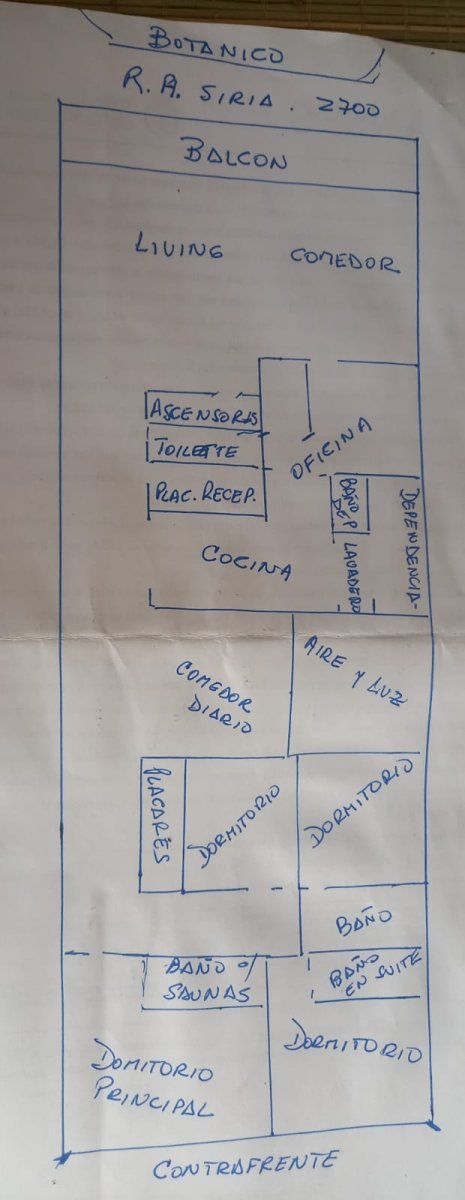 BOTANICO
R. A. SIRIA. 2700
BALCON
LIVING COMEDOR
ASCENSORES
TOILETTE
PLAC. RECEP.
OFICINA
BAÑO
DEP
DEPENDENCIA
LAVADERO
COCINA
AIRE Y LUZ
COMEDOR
DIARIO
PLACARES
DORMITORIO
DORMITORIO
BAÑO
BAÑO c/
SAUNAS
BAÑO
EN SUITE
DOMITORIO
PRINCIPAL
DORMITORIO
CONTRAFRENTE